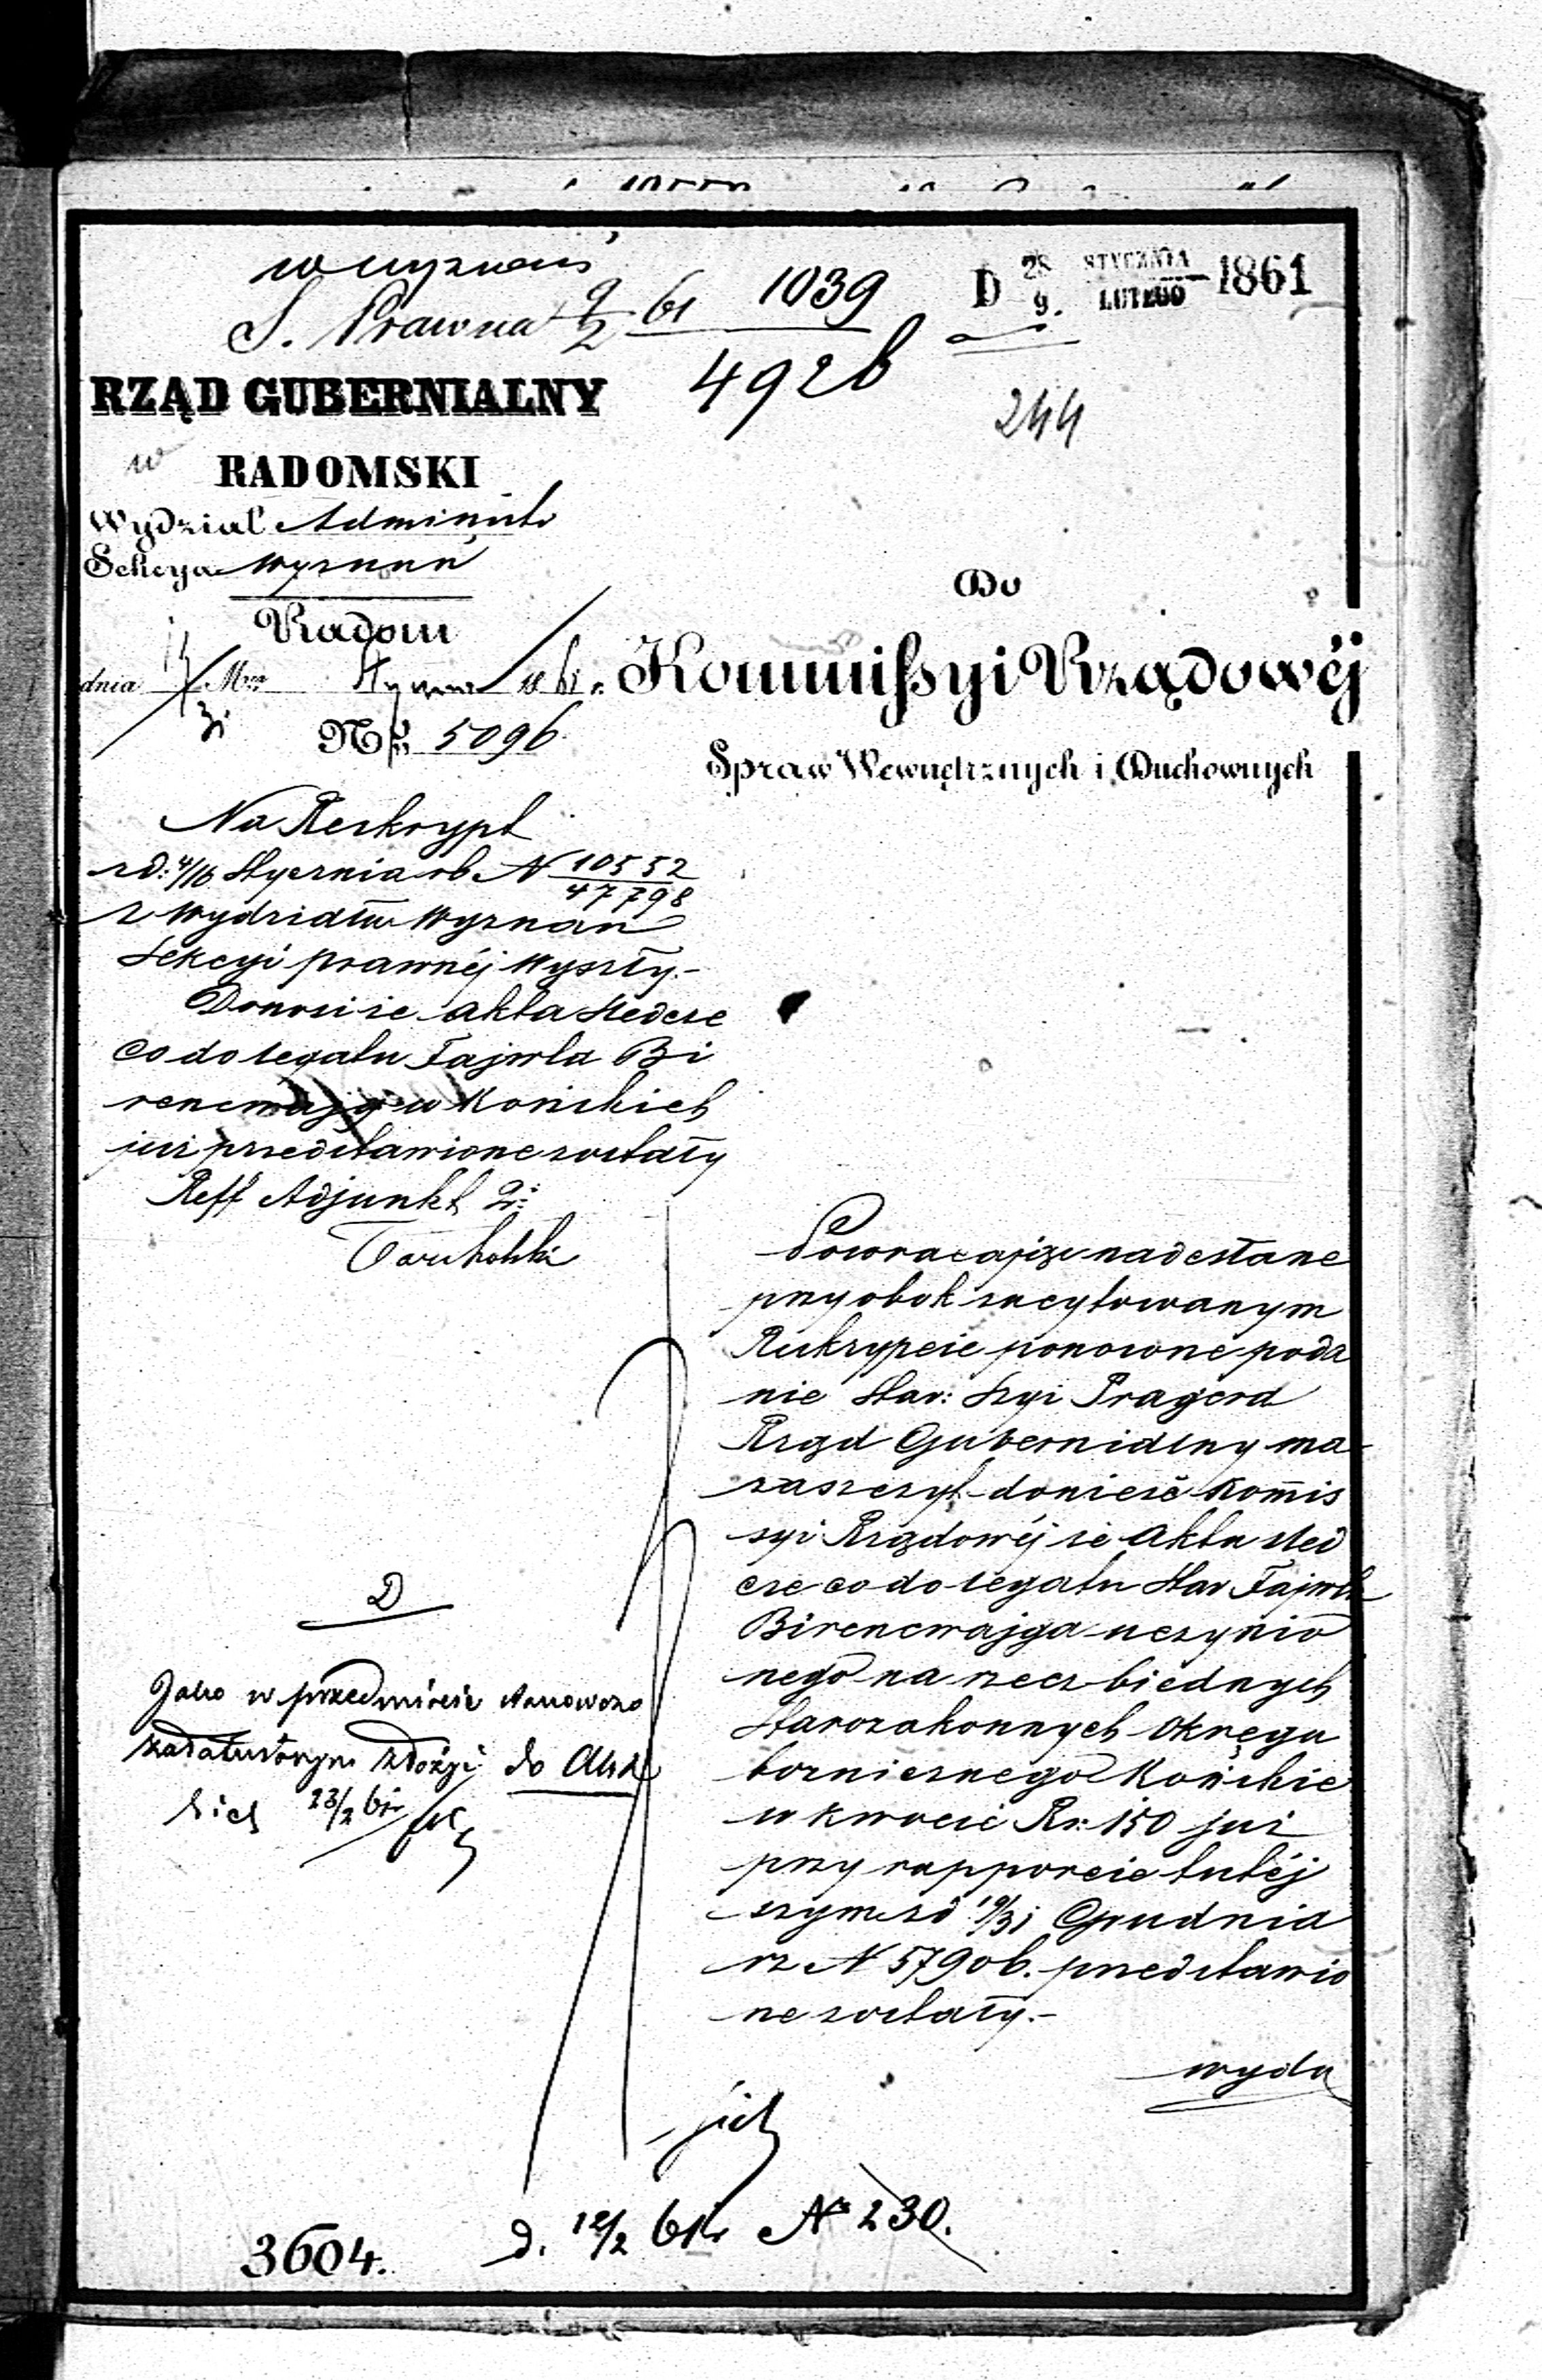 wyznań
S. Prawna 9/2 61 1039
4926
D 28 STYCZNIA 1861
9. LUTEGO
244
RZĄD GUBERNIALNY
w
RADOMSKI
Wydział Administr
Sekcya Wyznań
Radom
dnia 31 Mca Stycznia 1861 r.
Nr 5096
Do
Kommissyi Rządowéj
Spraw Wewnętrznych i Duchownych
Na Reskrypt
z d: 4/16 Stycznia rb N 10552
47798
z Wydziału Wyznań
Sekcyi prawnéj wyszły.-
Donosi że akta śledcze
co do legatu Fajwla Bi
rencwajga w Końskich
już przedstawione zostały
Reff Adjunkt 2i:
Powracając nadesłane
przy obok zacytowanym
Reskrypcie ponowne poda
nie Star: Szyi Pragera
Rząd Gubernialny ma
zaszczyt donieść Kommis
syi Rządowéj że akta śled
cze co do legatu Star Fajwla
Birencwajga uczynio
nego na rzecz biednych
Starozakonnych Okręgu
bożnicznego Końskie
w kwocie Rs: 150 już
przy rapporcie tutéj
szym z d 19/31 Grudnia
rz N 57906. przedstawio
ne zostały.-
wyda
D
Jako w przedmiocie stanowczo
załatwionym złożyć do Akt
23/2 61r
d. 12/2 61r N 230.
3604.